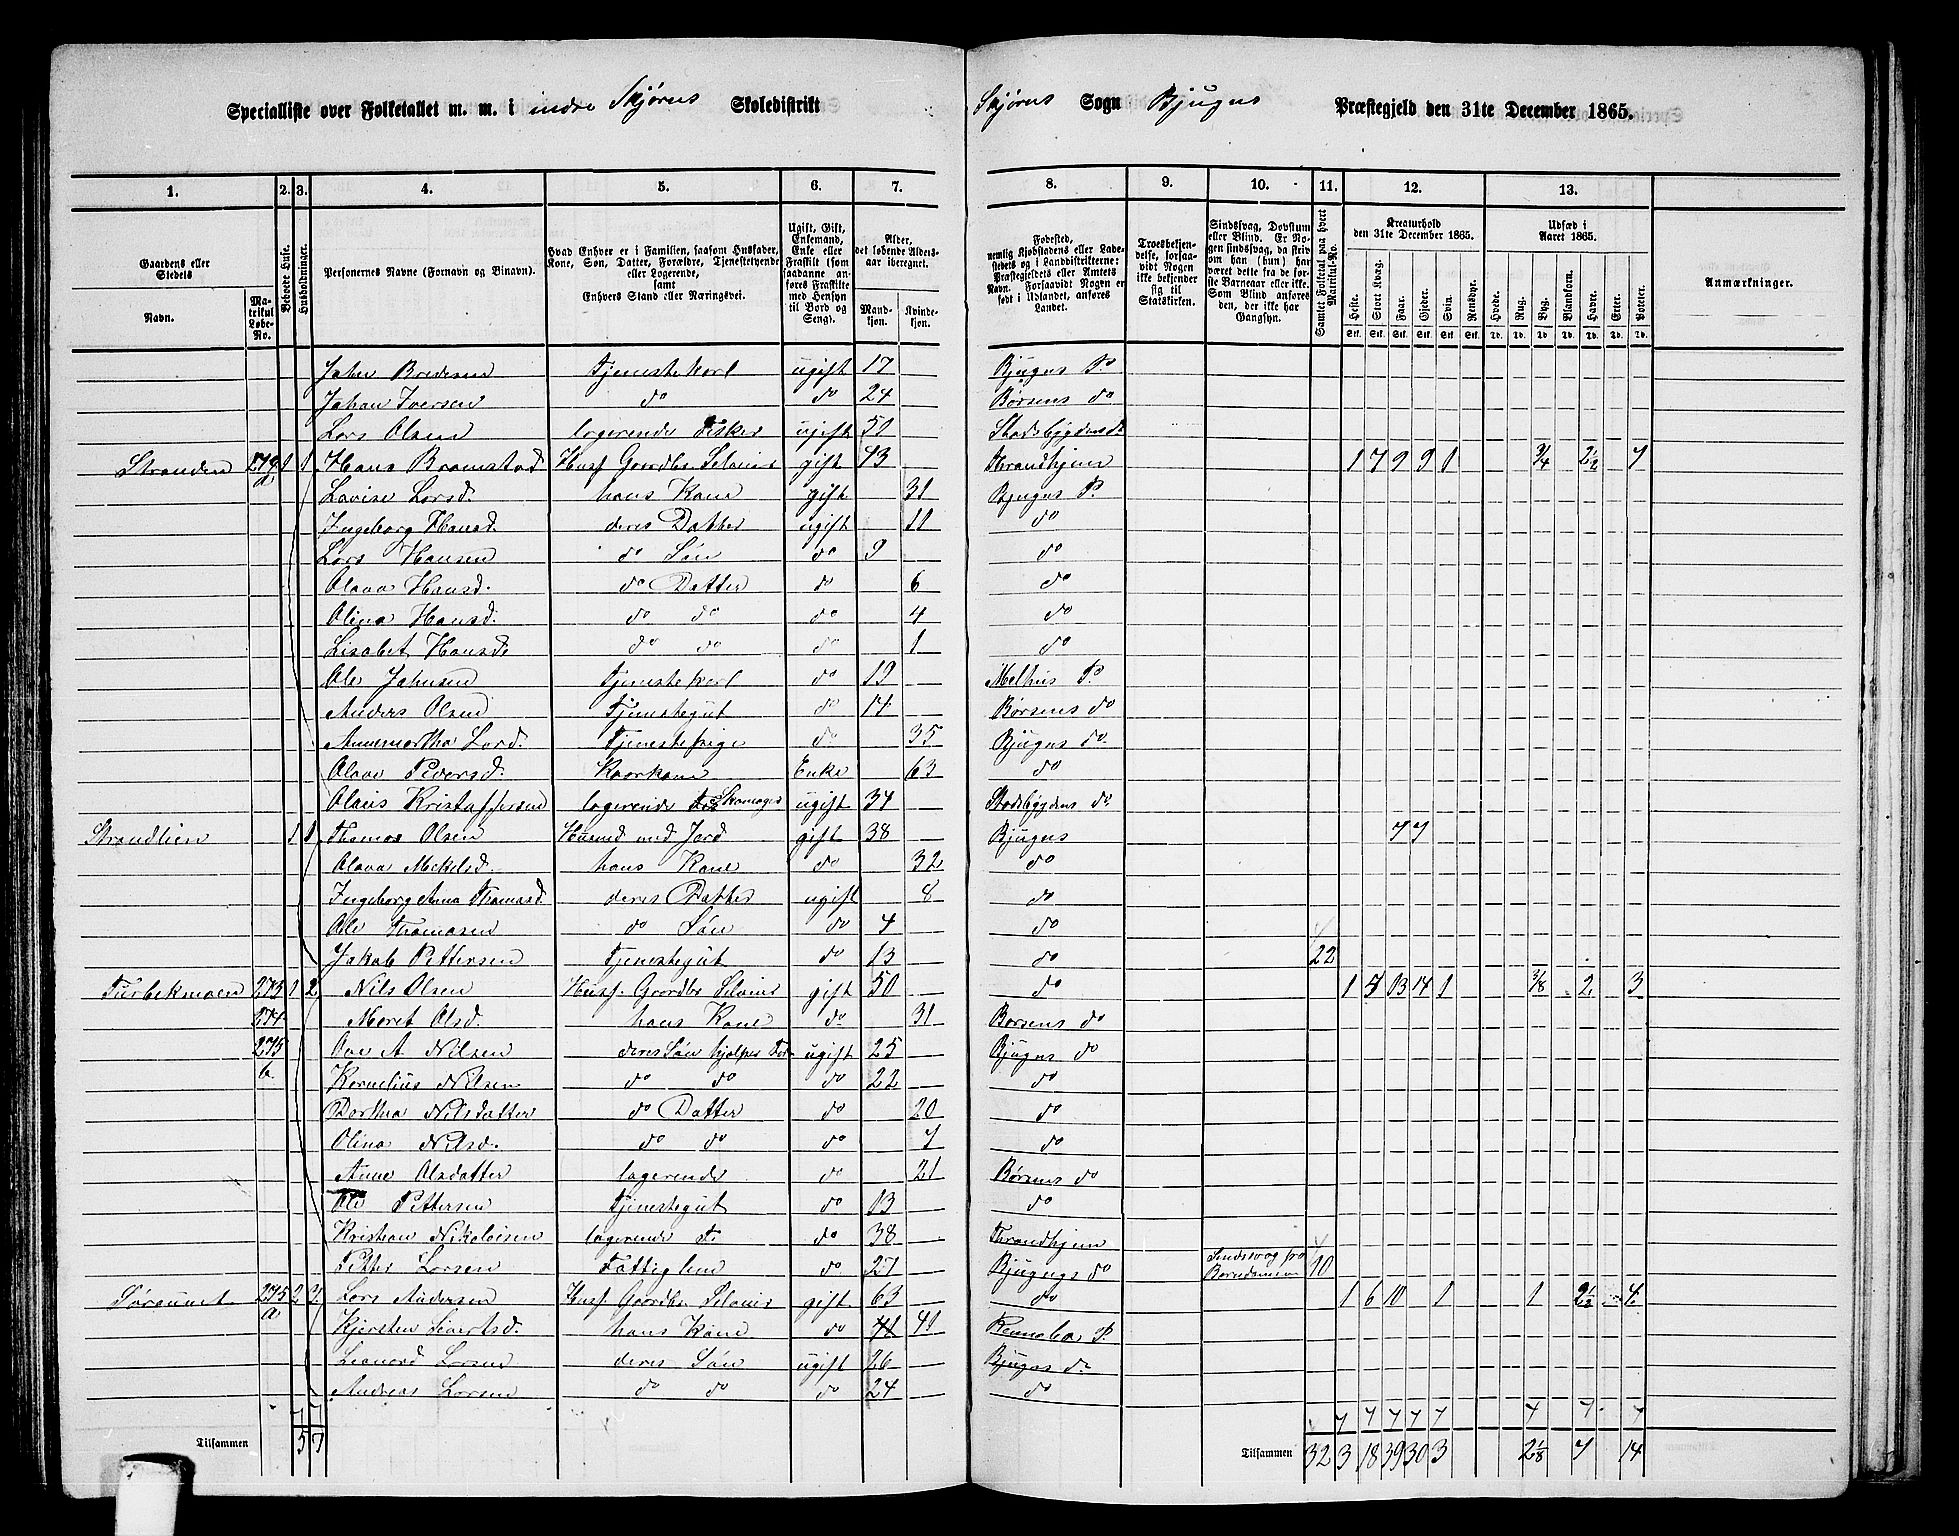 Specialliste over Folketallet m. m. i indre Skjørns Skoledistrikt Skjørns Sogn Bjugns Præstegjeld den 31te December 1865.
1. 2. 3. 4. 5. 6. 7. 8. 9. 10. 11. 12. 13.
Gaardens eller Stedets
Navn.
Matrikul Løbe-No.
Beboede Huse.
Husholdninger.
Personernes Navne (Fornavn og Binavn).
Hvad Enhver er i Familien, saasom Husfader, Kone, Søn, Datter, Forældre, Tjenestetyende eller Logerende, samt Enhvers Stand eller Næringsvei.
Ugift, Gift, Enkemand, Enke eller Fraskilt (som saadanne anføres Fraskilte med Hensyn til Bord og Seng).
Alder, det løbende Aldersaar iberegnet.
Mandkjøn. Kvindekjøn.
Fødested, nemlig Kjøbstadens eller Ladestedets og i Landdistrikterne: Præstegjeldets eller Amtets Navn. Forsaavidt Nogen er født i Udlandet, anføres Landet.
Troesbekjendelse, forsaavidt Nogen ikke bekjender sig til Statskirken.
Sindssvag, Døvstum eller Blind. Er Nogen sindssvag, da skrives om han (hun) har været dette fra de første Barneaar eller ikke. Som Blind anføres den, der ikke har Gangsyn.
Samlet Folketal paa hvert Matrikul-No.
Kreaturhold den 31te December 1865.
Heste. Stort Kvæg. Faar. Gjeder. Svin. Rensdyr.
Udsæd i Aaret 1865.
Hvede. Rug. Byg. Blandkorn. Havre. Erter. Poteter.
Anmærkninger.
John Bredesen Tjenestekarl ugift 17 Bjugns P.
Johan Iversen do do 24 Børsens do
Lars Olsen logerende Fisker ugift 50 Stadsbygdens do
Stranden 279 a 1 1 Hans Bromstad Husf. Gaardbr. Selveier gift 43 Throndhjem 1 7 9 9 1 3/4 2 1/2 7
Lovise Larsd. hans Kone gift 31 Bjugns P.
Ingeborg Hansd. deres Datter ugift 10 do
Lars Hansen do Søn do 9 do
Olava Hansd. do Datter do 6 do
Olina Hansd. do do do 4 do
Lisabet Hansd. do do do 1 do
Ole Johnsen Tjenestekarl do 19 Melhus P.
Anders Olsen Tjenestegut do 14 Børsens do
Annemartha Larsd. Tjenestepige do 35 Bjugns do
Olava Pedersd. Kaarkone Enke 63 do
Olaus Kristoffersen logerende Skomager ugift 34 Stadsbygdens do
Strandlien 1 1 Thomas Olsen Husmd med Jord gift 38 Bjugns 7 7
Olava Mekelsd. hans Kone do 32 do
Ingeborg Anna Thomasd. deres Datter ugift 8 do
Ole Thomasen do Søn do 4 do
Jakob Pettersen Tjenestegut do 13 do 22
Turbekmoen 273 1 2 Nils Olsen Husf. Gaardbr. Selveier gift 50 do 1 5 13 14 1 3/8 2 3
274 Meret Olsd. hans Kone do 31 Børsens do
275 Ove A Nilsen deres Søn hjelper Far ugift 25 Bjugns do
b Kornelius Nilsen do do do 22 do
Berthea Nilsdatter do Datter do 20 do
Olina Nilsd. do do do 7 do
Anne Olsdatter logerende do 21 Børsens do
Ole Pettersen Tjenestegut do 13 do
Kristian Nikolaisen logerende F. do 38 Throndhjem
Petter Larsen Fattiglem do 27 Bjugns do Sindssvag fra Barndommen 10
Sørtunet 275 a 2 3 Lars Andersen Husf. Gaardbr. Selveier gift 63 do 1 6 10 1 1 2 1/2 4
Kjersten Sivertsd. hans Kone do 41 Rennebo P.
Leonard Larsen deres Søn ugift 26 Bjugns do
Andreas Larsen do do do 24 do
Tilsammen 5 7 Tilsammen 32 3 18 39 30 3 2 1/8 7 14